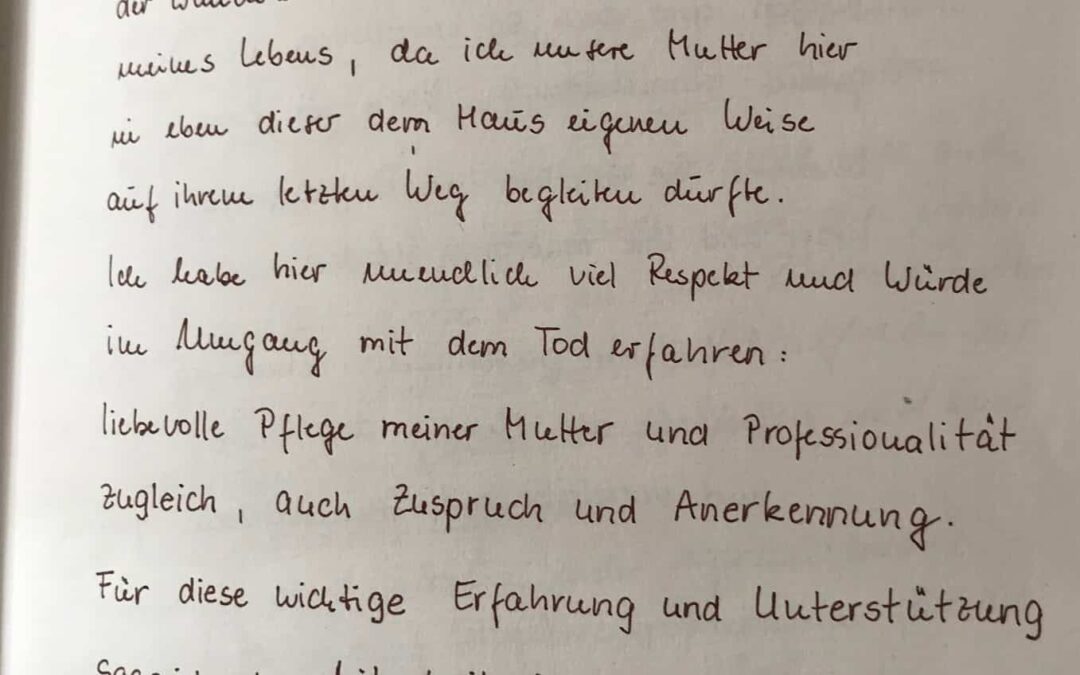 der
meines Lebens, da ich unsere Mutter hier
in eben dieser dem Haus eigenen Weise
auf ihrem letzten Weg begleiten durfte.
Ich habe hier unendlich viel Respekt und Würde
im Umgang mit dem Tod erfahren:
liebevolle Pflege meiner Mutter und Professionalität
zugleich, auch Zuspruch und Anerkennung.
Für diese wichtige Erfahrung und Unterstützung